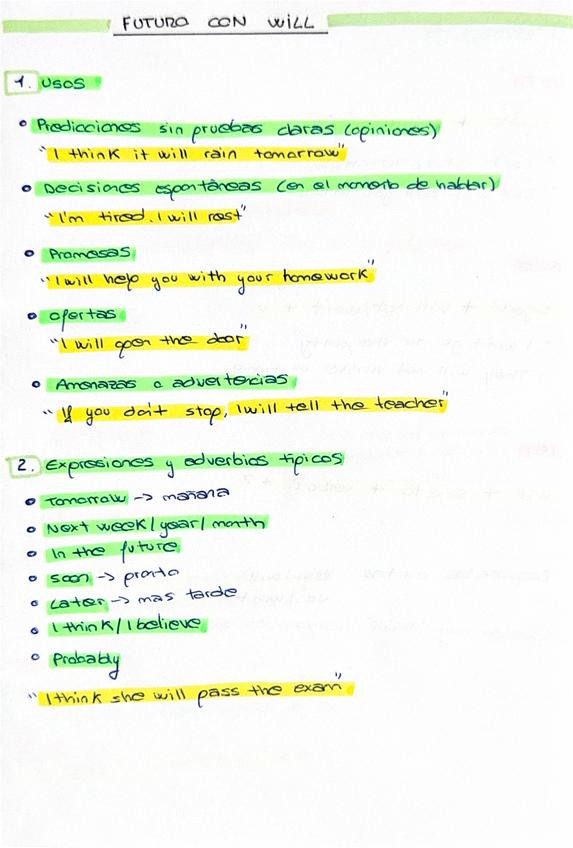 FUTURO CON WILL
1. USOS
• Predicciones sin pruebas claras (opiniones)
"I think it will rain tomorrow"
• Decisiones espontáneas (en el momento de hablar)
"I'm tired. I will rest"
• Promesas
"I will help you with your homework"
• Ofertas
"I will open the door"
• Amenazas o advertencias
"If you don't stop, I will tell the teacher"
2. Expresiones y adverbios típicos
• Tomorrow -> mañana
• Next week/year/month
• In the future
• Soon -> pronto
• Later -> mas tarde
• I think/I believe
• Probably
"I think she will pass the exam"